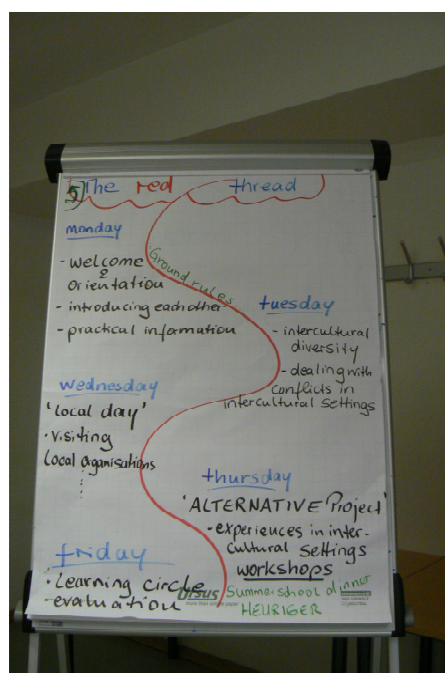 5) The red thread
monday
- welcome
&
orientation
- introducing each other
- practical information
Ground rules
tuesday
- intercultural
diversity
- dealing with
conflicts in
intercultural settings
wednesday
'local day'
• visiting
local organisations
thursday
'ALTERNATIVE Project'
- experiences in inter-
cultural settings
workshops
friday
• Learning circle
- evaluation
Ursus
Summerschool dinner
HEURIGER